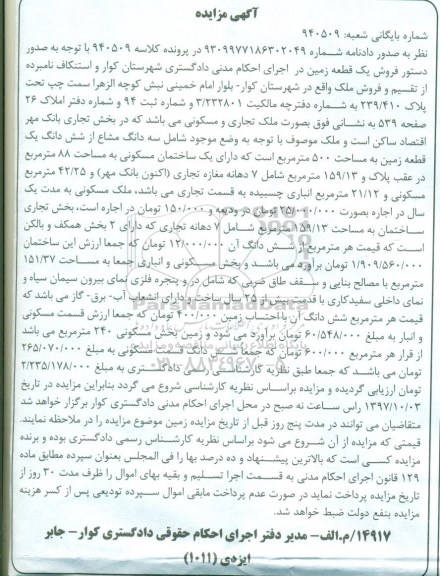 آگهی مزایده
شماره بایگانی شعبه: ۹۴۰۵۰۹
نظر به صدور دادنامه شماره ۹۳۰۹۹۷۷۱۸۶۳۰۲۰۴۹ در پرونده کلاسه ۹۴۰۵۰۹ با توجه به صدور
دستور فروش یک قطعه زمین در اجرای احکام مدنی دادگستری شهرستان کوار و استنکاف نامبرده
از تقسیم و فروش ملک واقع در شهرستان کوار- بلوار امام خمینی نبش کوچه الزهرا سمت چپ تحت
پلاک ۲۳۹/۴۱۰ به شماره دفترچه مالکیت ۳/۲۳۲۸۰۱ و شماره ثبت ۹۴ و شماره دفتر املاک ۲۶
صفحه ۵۳۹ به نشانی فوق بصورت ملک تجاری و مسکونی می باشد که در بخش تجاری بانک مهر
اقتصاد ساکن است و ملک موصوف با توجه به وضع موجود شامل سه دانگ مشاع از شش دانگ یک
قطعه زمین به مساحت ۵۰۰ مترمربع است که دارای یک ساختمان مسکونی به مساحت ۸۸ مترمربع
در عقب پلاک و ۱۵۹/۱۳ مترمربع شامل ۷ دهانه مغازه تجاری (اکنون بانک مهر) و ۴۲/۲۵ مترمربع
مسکونی و ۲۱/۱۲ مترمربع انباری چسبیده به قسمت تجاری می باشد، ملک مسکونی به مدت یک
سال در اجاره بصورت ۱۲۵/۰۰۰/۰۰۰ تومان در ودیعه و ۱۵۰/۰۰۰ تومان در اجاره است، بخش تجاری
ساختمان به مساحت ۱۵۹/۱۳ مترمربع شامل ۷ دهانه تجاری که دارای ۲ بخش همکف و بالکن
است که قیمت هر مترمربع از شش دانگ آن ۱۲/۰۰۰/۰۰۰ تومان که جمعا ارزش این ساختمان
۱/۹۰۹/۵۶۰/۰۰۰ تومان برآورد می باشد و بخش مسکونی و انباری جمعا به مساحت ۱۵۱/۳۷
مترمربع با مصالح بنایی و سقف طاق ضربی که شامل در و پنجره فلزی نمای بیرون سیمان سیاه و
نمای داخلی سفیدکاری با قدمت بیش از ۲۵ سال ساخت و دارای انشعاب آب- برق- گاز می باشد که
قیمت هر مترمربع شش دانگ آن با احتساب زمین ۴۰۰/۰۰۰ تومان که جمعا ارزش قسمت مسکونی
و انبار به مبلغ ۶۰/۵۴۸/۰۰۰ تومان برآورد می شود و زمین بخش مسکونی ۲۴۰ مترمربع می باشد
از قرار هر مترمربع ۶۰۰/۰۰۰ تومان که جمعا شش دانگ قسمت مسکونی به مبلغ ۲۶۵/۰۷۰/۰۰۰
تومان می باشد که جمعا طبق نظریه کارشناس رسمی دادگستری به مبلغ ۲/۲۳۵/۱۷۸/۰۰۰
تومان ارزیابی گردیده و مزایده براساس نظریه کارشناسی شروع می گردد بنابراین مزایده در تاریخ
۱۳۹۷/۱۰/۰۳ راس ساعت نه صبح در محل اجرای احکام مدنی دادگستری کوار برگزار خواهد شد
متقاضیان می توانند در مدت پنج روز قبل از تاریخ مزایده زمین موضوع مزایده را در ملاحظه نمایند.
قیمتی که مزایده از آن شروع می شود براساس نظریه کارشناس رسمی دادگستری بوده و برنده
مزایده کسی است که بالاترین پیشنهاد و ده درصد بها را فی المجلس بعنوان سپرده مطابق ماده
۱۲۹ قانون اجرای احکام مدنی به قسمت اجرا تسلیم و بقیه بهای اموال را ظرف مدت ۳۰ روز از
تاریخ مزایده پرداخت نماید در صورت عدم پرداخت مابقی اموال سپرده تودیعی پس از کسر هزینه
مزایده بنفع دولت ضبط خواهد شد.
۱۴۹۱۷/م.الف- مدیر دفتر اجرای احکام حقوقی دادگستری کوار- جابر
ایزدی (۱۰۱۱)